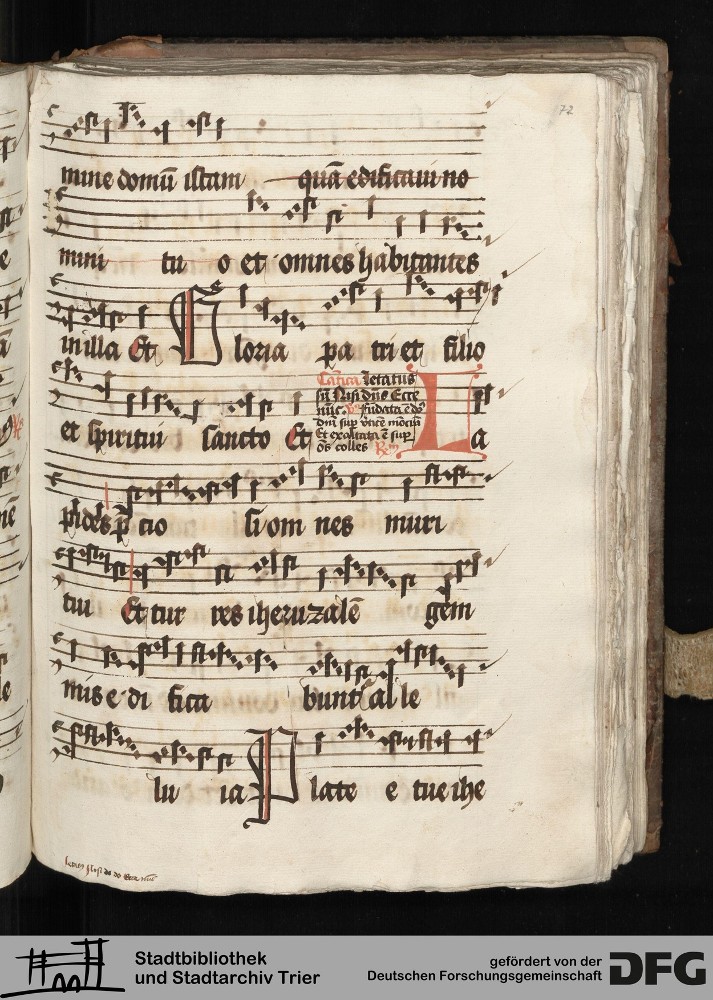 72
mine domū istam quā edificaui no
mini tu o et omnes habitantes
in illa Et Gloria pa tri et filio
Cātica letatus
sū Nisi dn̄s Ecce
nūc fūdata ē do
dn̄i sup
Et exaltata ē sup
ōs colles
et spiritui sancto Et La
pides p̄ cio si om nes muri
tui Et tur res iheruzalē gem
mis e di fica bunt al le
lu ia Plate e tue ihe
Stadtbibliothek
und Stadtarchiv Trier
gefördert von der
Deutschen Forschungsgemeinschaft
DFG